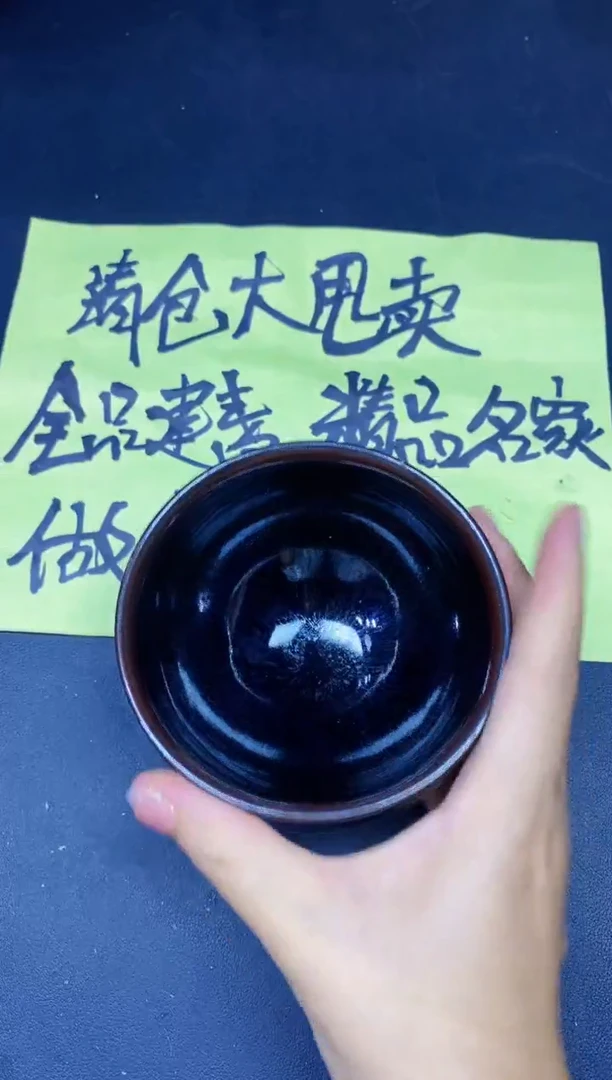 清仓大甩卖
全品建盏 精品名家
做